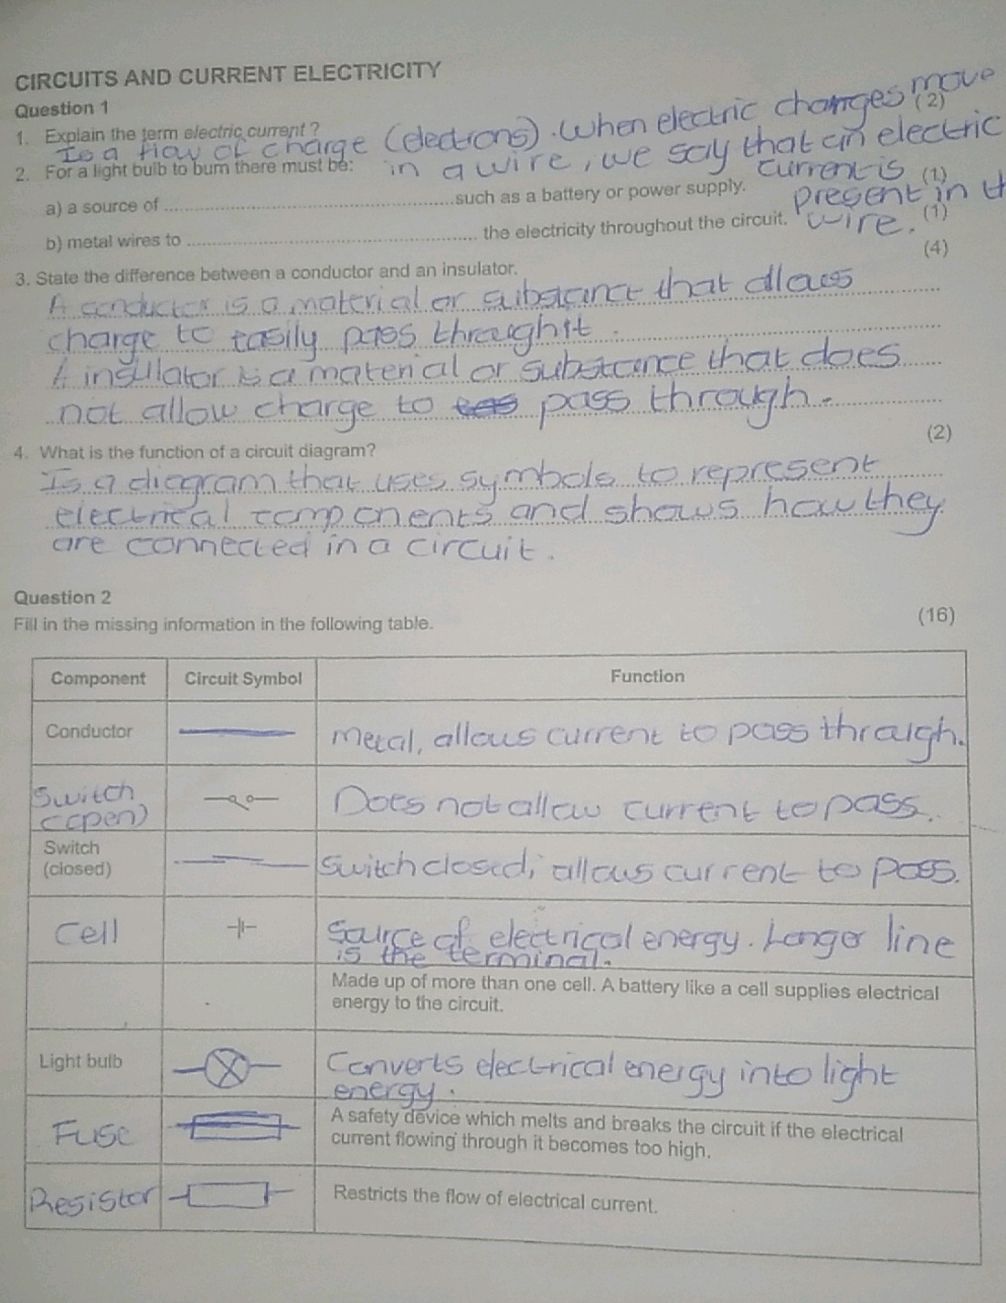 CIRCUITS AND CURRENT ELECTRICITY
Question 1
1. Explain the term electric current? (2)
Is a flow of charge (electrons). When electric charges move
in a wire, we say that an electric
current is
present in th
wire.
2. For a light bulb to burn there must be:
a) a source of ........................................ such as a battery or power supply. (1)
b) metal wires to ........................................ the electricity throughout the circuit. (1)
3. State the difference between a conductor and an insulator. (4)
A conductor is a material or substance that allows
charge to easily pass through it.
A insulator is a material or substance that does
not allow charge to pass through.
4. What is the function of a circuit diagram? (2)
Is a diagram that uses symbols to represent
electrical components and shows how they
are connected in a circuit.
Question 2
Fill in the missing information in the following table. (16)
Component Circuit Symbol Function
Conductor Metal, allows current to pass through.
Switch (open) Does not allow current to pass.
Switch (closed) Switch closed, allows current to pass.
Cell Source of electrical energy. Longer line
is the terminal.
Made up of more than one cell. A battery like a cell supplies electrical
energy to the circuit.
Light bulb Converts electrical energy into light
energy.
Fuse A safety device which melts and breaks the circuit if the electrical
current flowing through it becomes too high.
Resistor Restricts the flow of electrical current.